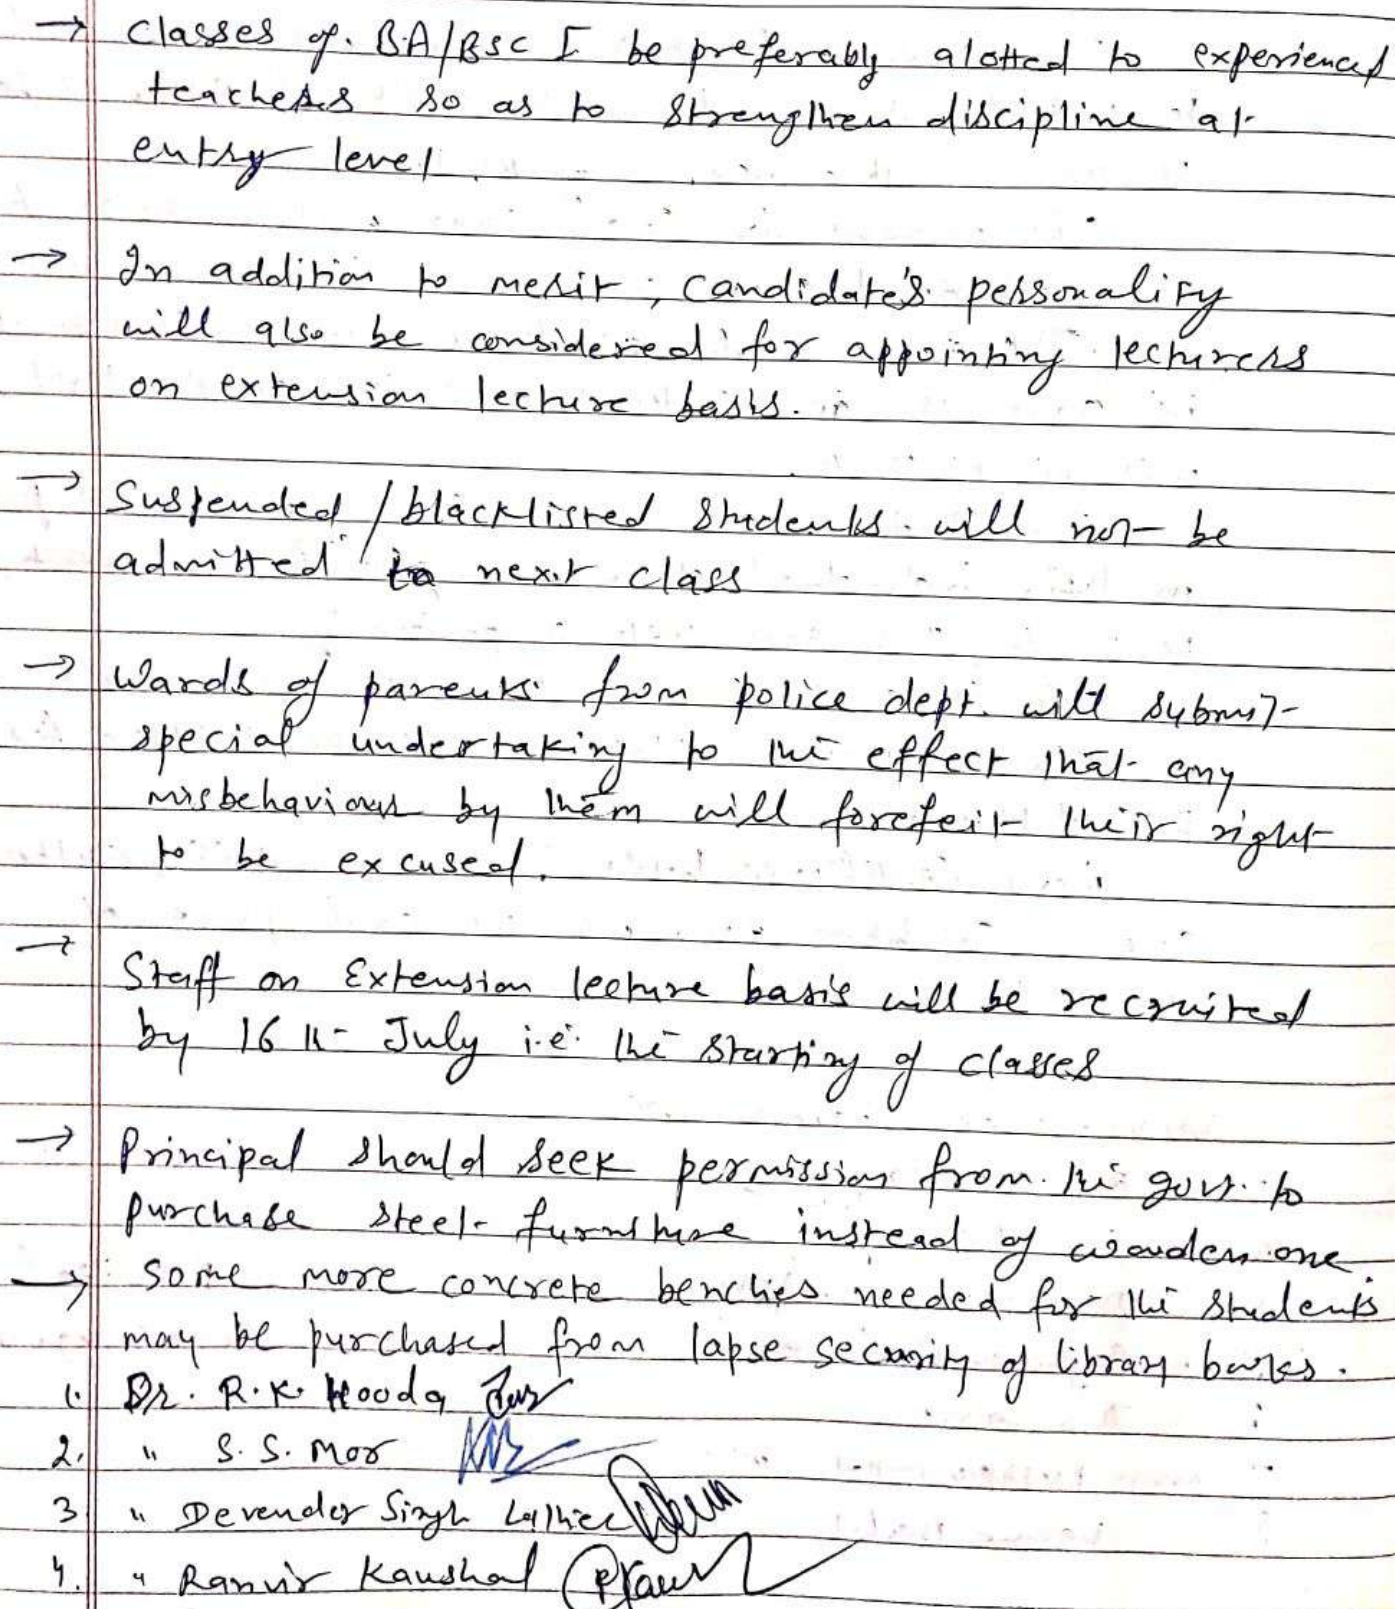 → Classes of BA/BSC I be preferably alotted to experienced
teachers so as to strengthen discipline at
entry level.
→ In addition to merit, candidate's personality
will also be considered for appointing lecturers
on extension lecture basis.
→ Suspended/blacklisted students will not be
admitted to next class
→ Wards of parents from police dept. will submit
special undertaking to the effect that any
misbehaviour by them will forefeit their right
to be excused.
→ Staff on Extension lecture basis will be recruited
by 16 th July i.e. the starting of classes
→ Principal should seek permission from the govt. to
purchase steel furniture instead of wooden one.
→ Some more concrete benches needed for the students
may be purchased from lapse security of library books.
1. Dr. R.K. Hooda
2. " S.S. Mor
3 " Devender Singh
4. " Ranvir Kaushal